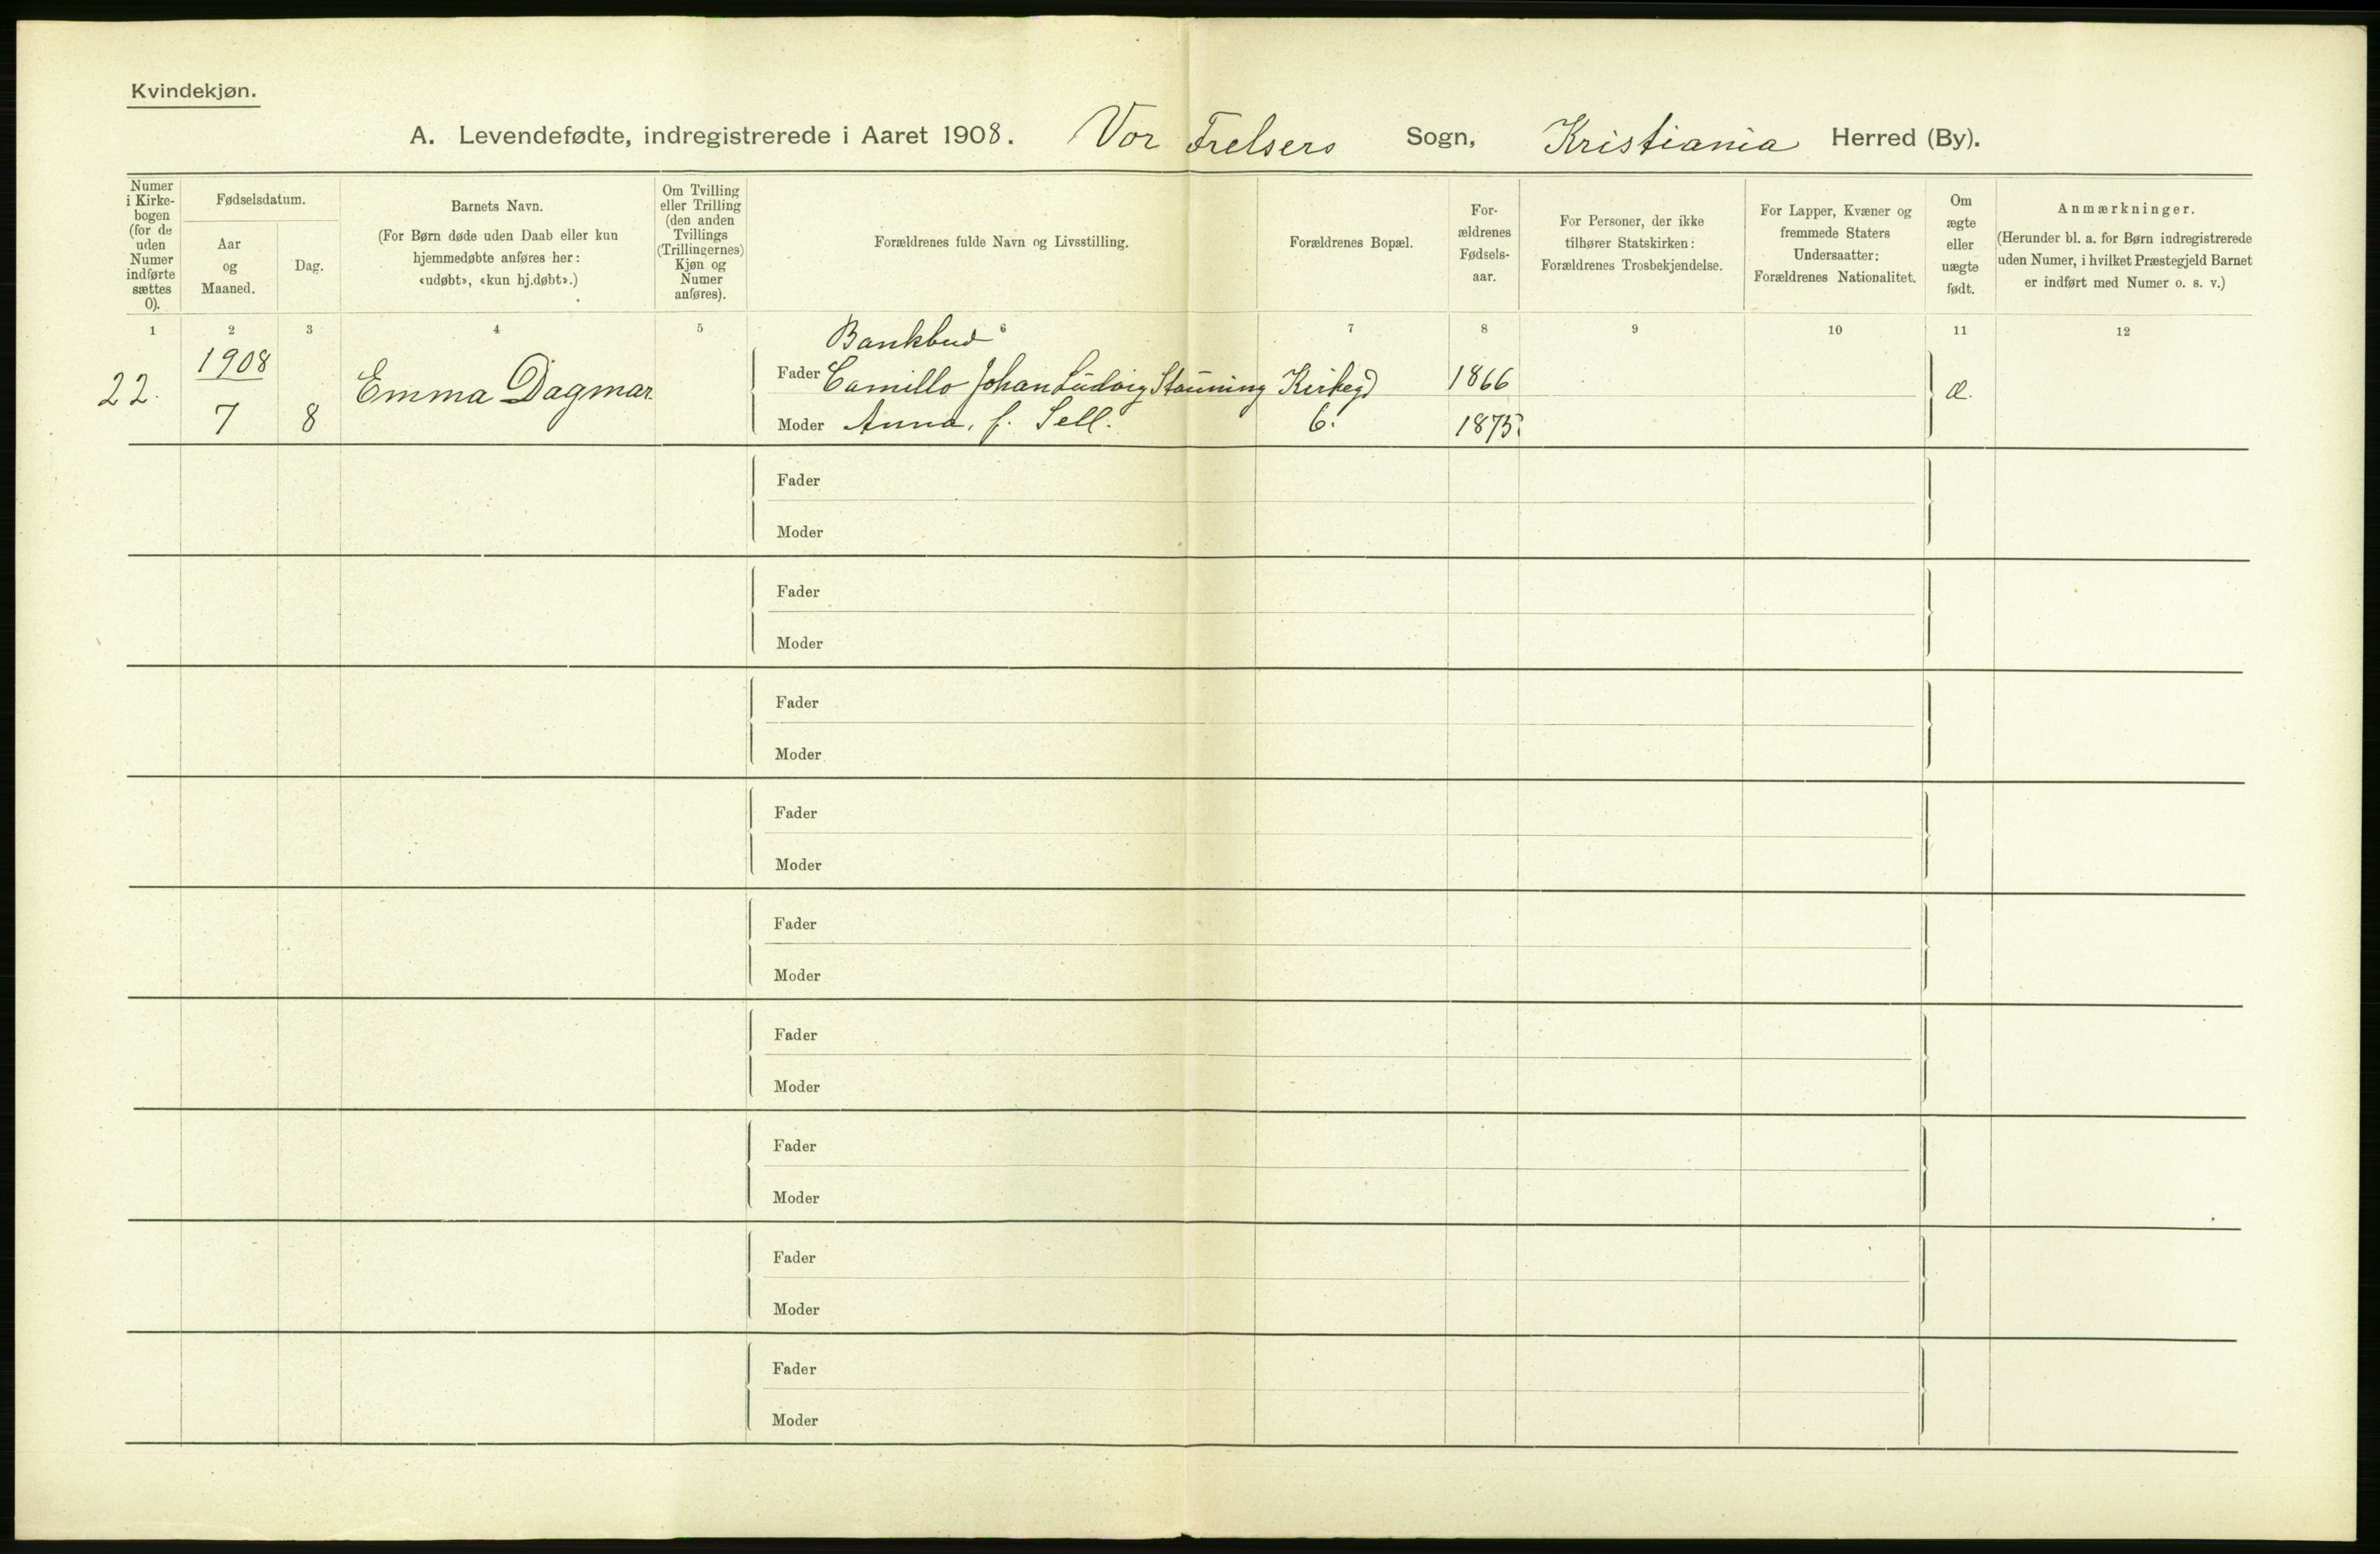 Kvindekjøn.
A. Levendefødte, indregistrerede i Aaret 1908. Vor Frelsers Sogn, Kristiania Herred (By).
Numer
i Kirke-
bogen
(for de
uden
Numer
indførte
sættes
0).
Fødselsdatum.
Aar
og
Maaned.
Dag.
Barnets Navn.
(For Børn døde uden Daab eller kun
hjemmedøbte anføres her:
«udøbt», «kun hj.døbt».)
Om Tvilling
eller Trilling
(den anden
Tvillings
(Trillingernes)
Kjøn og
Numer
anføres).
Forældrenes fulde Navn og Livsstilling.
Forældrenes Bopæl.
For-
ældrenes
Fødsels-
aar.
For Personer, der ikke
tilhører Statskirken:
Forældrenes Trosbekjendelse.
For Lapper, Kvæner og
fremmede Staters
Undersaatter:
Forældrenes Nationalitet.
Om
ægte
eller
uægte
født.
Anmærkninger.
(Herunder bl. a. for Børn indregistrerede
uden Numer, i hvilket Præstegjeld Barnet
er indført med Numer o. s. v.)
1 2 3 4 5 6 7 8 9 10 11 12
Bankbud
22. 1908 Emma Dagmar Fader Camillo Johan Ludvig Stauning Kirkegd 1866 æ.
7 8 Moder Anna, f. Sell. 6. 1875.
Fader
Moder
Fader
Moder
Fader
Moder
Fader
Moder
Fader
Moder
Fader
Moder
Fader
Moder
Fader
Moder
Fader
Moder